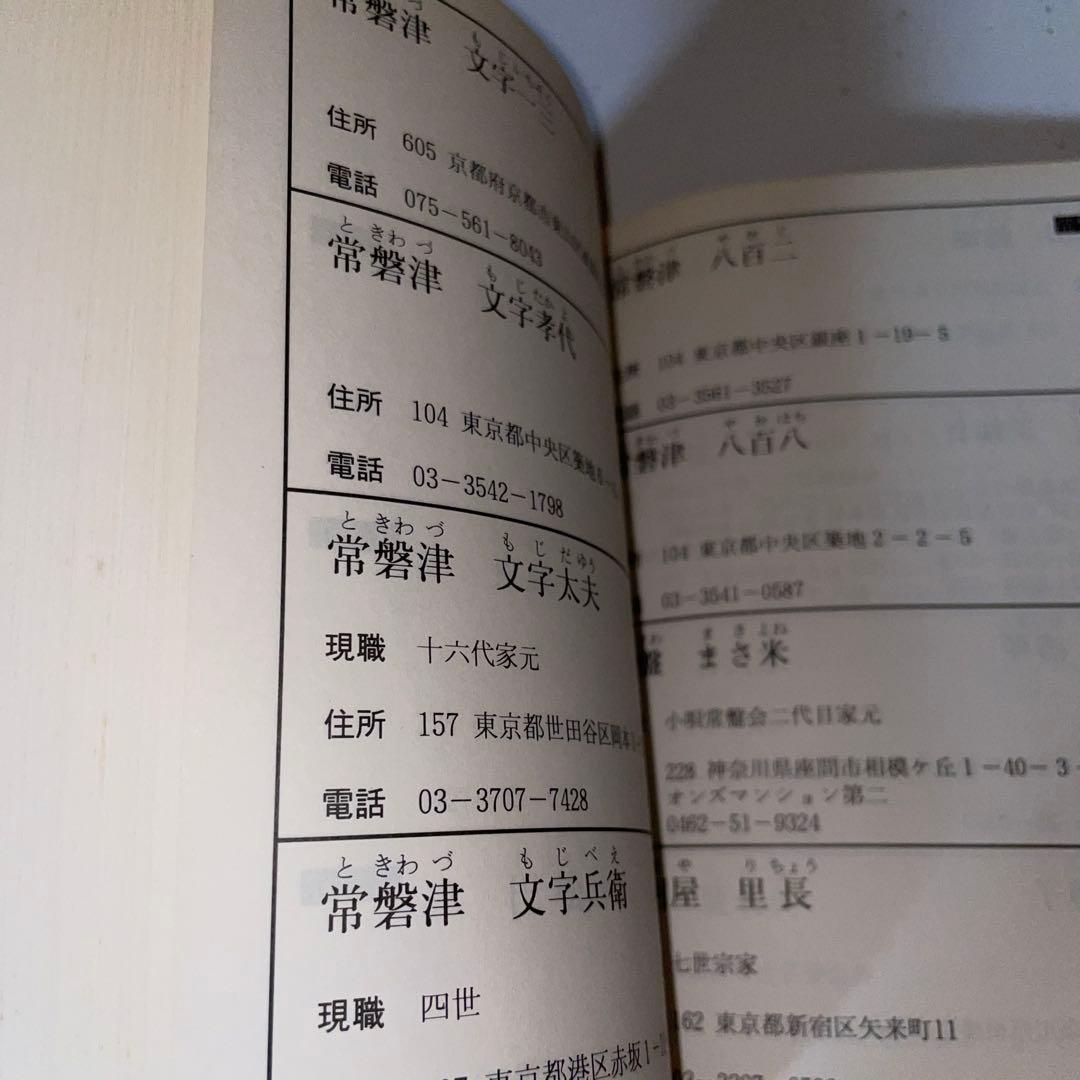 常磐津
住所 605 京都府京都市
電話 075-561-8043
ときわづ もじたかよ
常磐津 文字孝代
住所 104 東京都中央区築地
電話 03-3542-1798
ときわづ もじだゆう
常磐津 文字太夫
現職 十六代家元
住所 157 東京都世田谷区岡本
電話 03-3707-7428
ときわづ もじべえ
常磐津 文字兵衛
現職 四世
東京都港区赤坂1-
磐津 八百二
104 東京都中央区銀座1-19-8
03-3561-3527
やおはち
磐津 八百八
104 東京都中央区築地2-2-5
03-3541-0587
まさよね
まさ米
小唄常盤会二代目家元
228 神奈川県座間市相模ケ丘1-40-3-
オンズマンション第二
0462-51-9324
や りちょう
屋 里長
七世宗家
162 東京都新宿区矢来町11